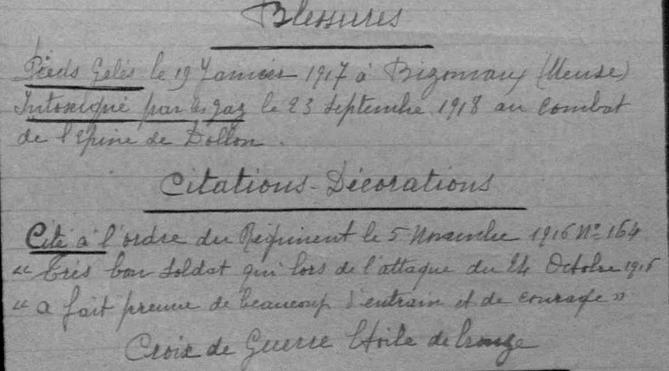 Blessures
Pieds Gelés le 19 Janvier 1917 à Bizomaux (Meuse)
Intoxiqué par les gaz le 23 Septembre 1918 au combat
de l'Epine de Dollon.
Citations-Décorations
Cité à l'ordre du Régiment le 5 Novembre 1916 N° 164
"très bon soldat qui lors de l'attaque du 24 Octobre 1916
"a fait preuve de beaucoup d'entrain et de courage"
Croix de Guerre Etoile de bronze